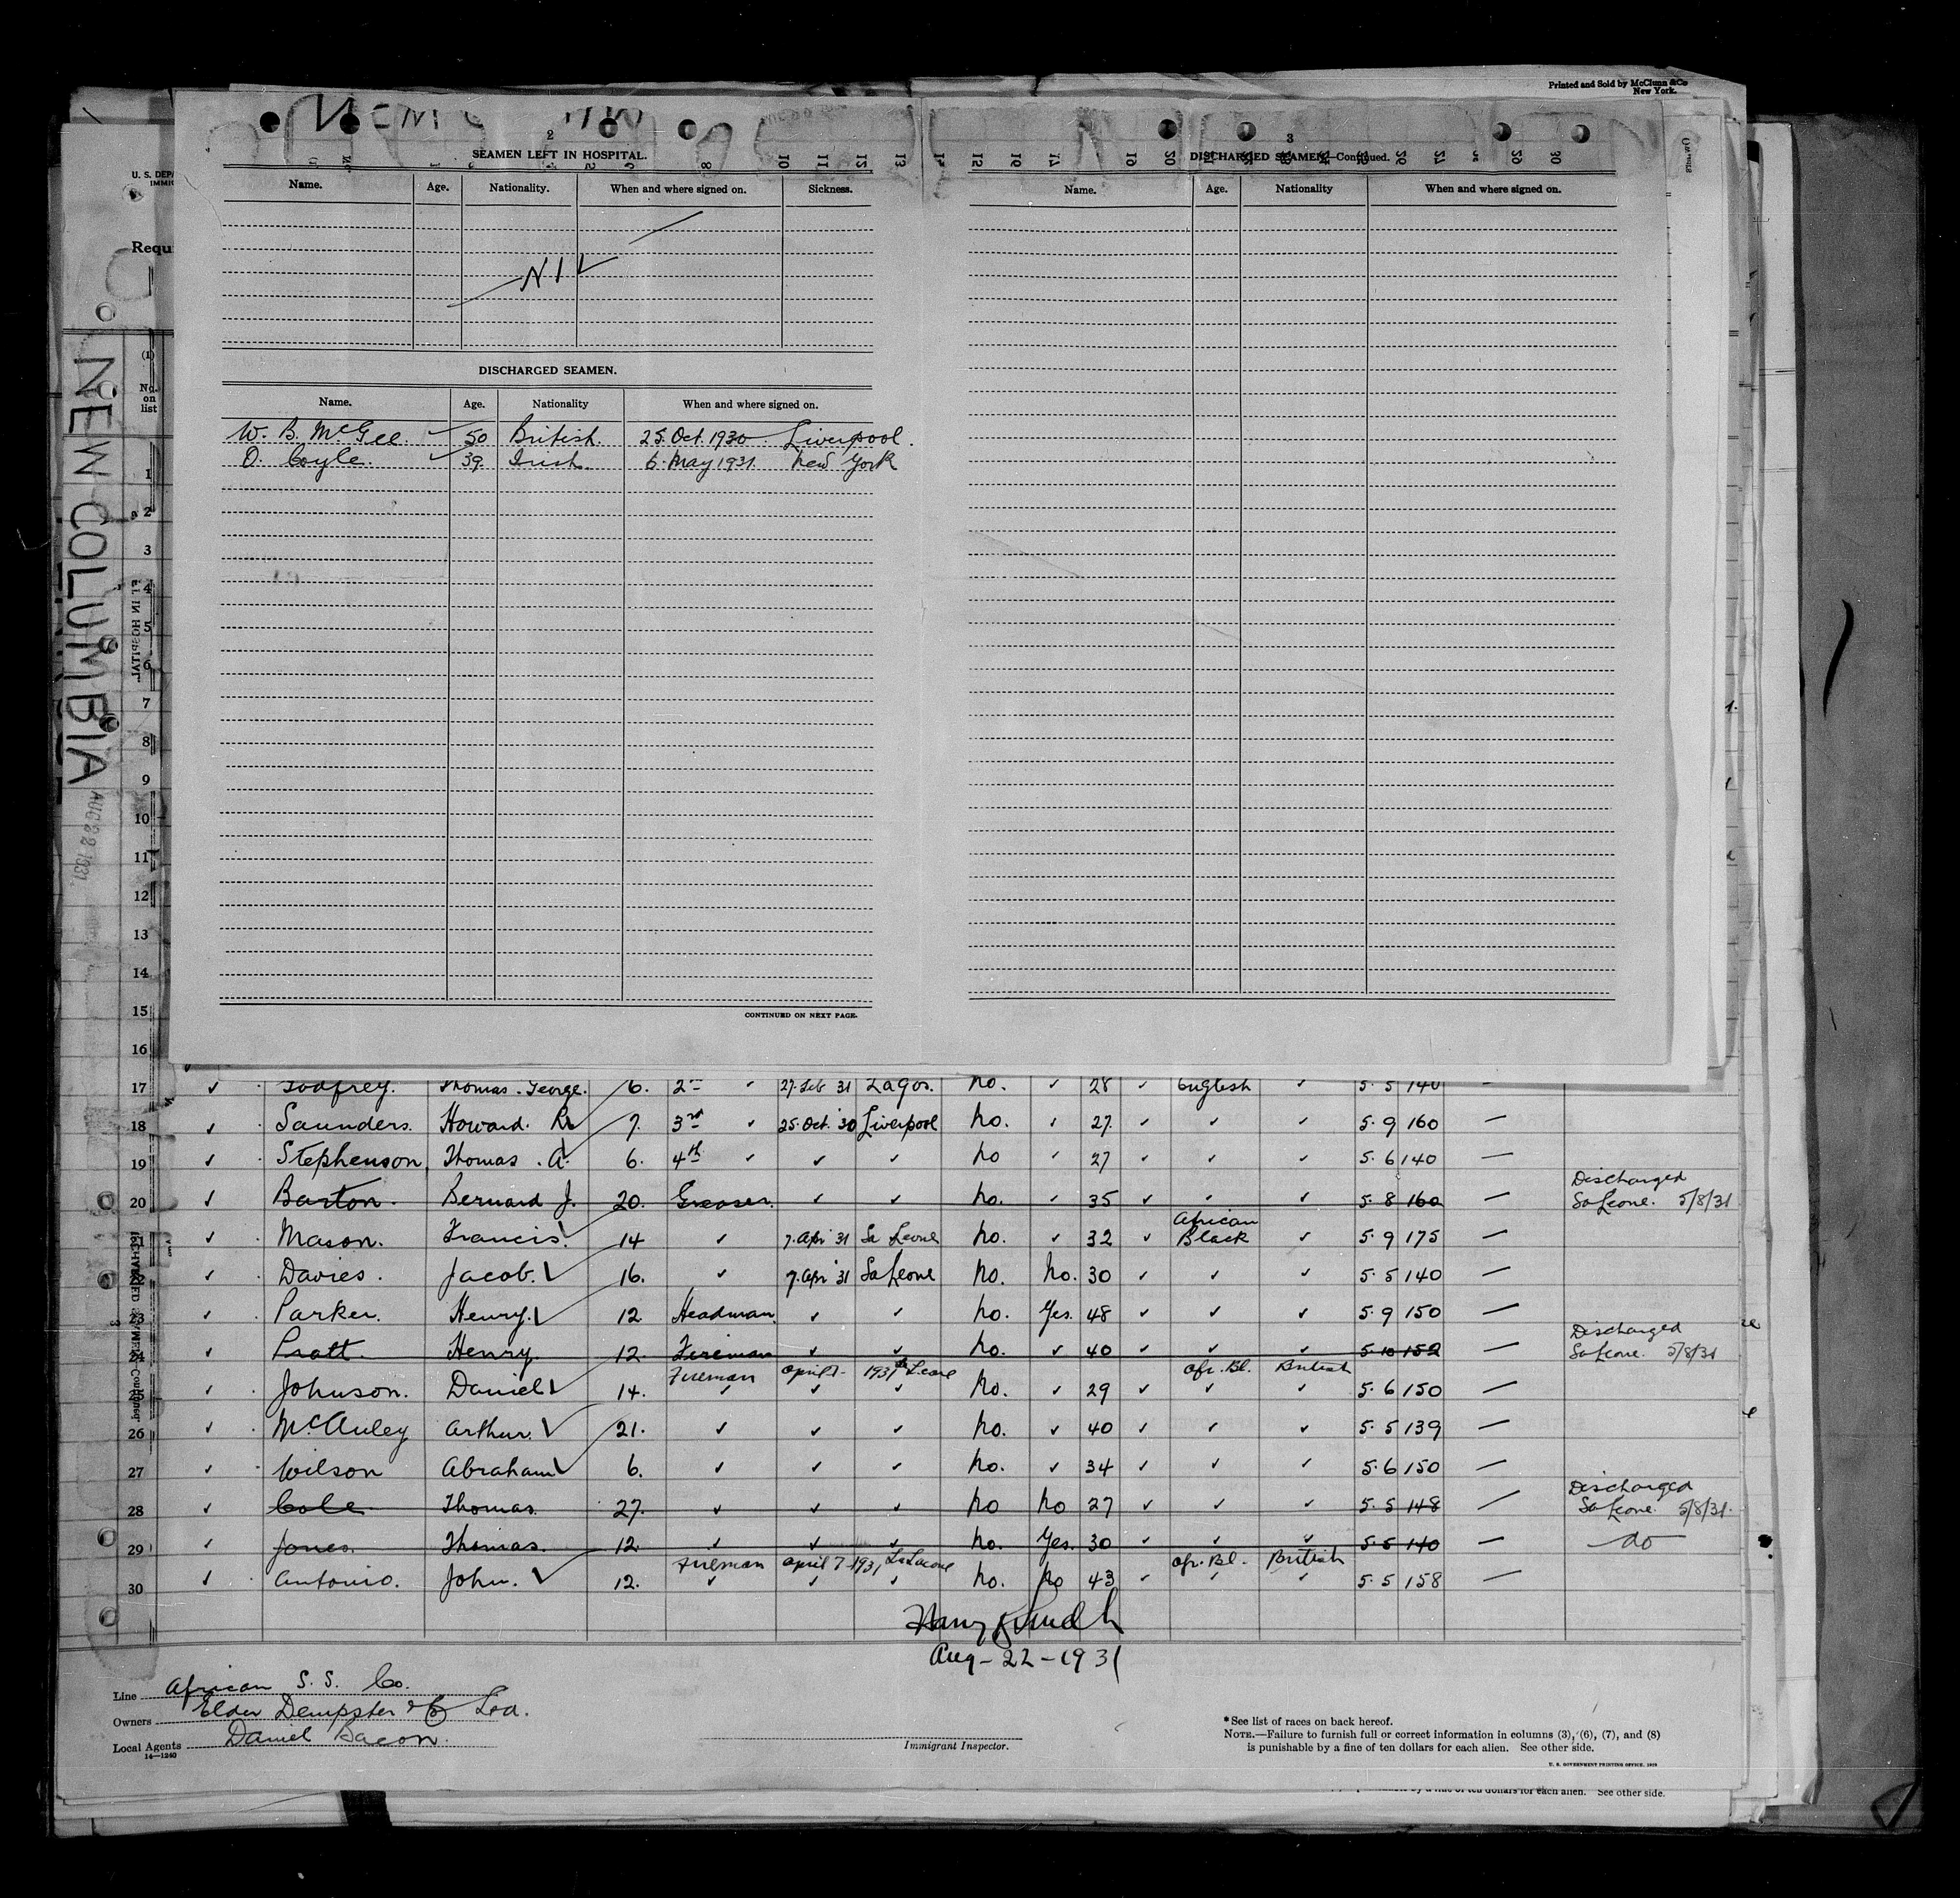 Printed and Sold by McClunn & Co
New York.
2
SEAMEN LEFT IN HOSPITAL.
Name. Age. Nationality. When and where signed on. Sickness.
NIL
DISCHARGED SEAMEN.
Name. Age. Nationality When and where signed on.
W. B. McGee. 50 British 25. Oct. 1930 Liverpool.
O. Coyle. 39. Irish. 6. May 1931. New York
CONTINUED ON NEXT PAGE.
3
DISCHARGED SEAMEN—Continued.
Name. Age. Nationality When and where signed on.
U. S. DEPA
IMMIG
Requi
(1)
No.
on
list
NEW COLUMBIA
AUG 22 1931
1
2
3
4
5
6
7
8
9
10
11
12
13
14
15
16
17 ✓ Godfrey. Thomas. George. 6. 2nd ✓ 27. Feb 31 Lagos. No. ✓ 28 ✓ English ✓ 5. 5 140 —
18 ✓ Saunders. Howard. R 7. 3rd ✓ 25. Oct. '30 Liverpool No. ✓ 27. ✓ ✓ ✓ 5. 9 160 —
19 ✓ Stephenson Thomas. A. 6. 4th ✓ ✓ ✓ No ✓ 27 ✓ ✓ ✓ 5. 6 140 —
20 ✓ Barton. Bernard J. 20. Greaser. ✓ ✓ No. ✓ 35 ✓ ✓ ✓ 5. 8 160 — Discharged Sa Leone. 5/8/31
21 ✓ Mason. Francis. 14 ✓ 7. Apr '31 Sa Leone No. ✓ 32 ✓ African Black ✓ 5. 9 175 —
22 ✓ Davies. Jacob. 16. ✓ 7. Apr '31 Sa Leone No. No. 30 ✓ ✓ ✓ 5. 5 140 —
23 ✓ Parker. Henry. 12 Headman. ✓ ✓ No. Yes. 48 ✓ ✓ ✓ 5. 9 150 —
24 ✓ Pratt. Henry. 12. Fireman ✓ ✓ No. ✓ 40 ✓ ✓ ✓ 5. 10 152 — Discharged Sa Leone. 5/8/31
Fireman April 7- 1931 Sa Leone Afr. Bl. British
25 ✓ Johnson. Daniel 14. ✓ ✓ ✓ No. ✓ 29 ✓ ✓ ✓ 5. 6 150 —
26 ✓ McAuley Arthur. 21. ✓ ✓ ✓ No. ✓ 40 ✓ ✓ ✓ 5. 5 139 —
27 ✓ Wilson Abraham 6. ✓ ✓ ✓ No. ✓ 34 ✓ ✓ ✓ 5. 6 150 —
28 ✓ Cole Thomas. 27. ✓ ✓ ✓ No No 27 ✓ ✓ ✓ 5. 5 148 — Discharged Sa Leone. 5/8/31.
29 ✓ Jones. Thomas. 12. ✓ ✓ ✓ No. Yes. 30 ✓ ✓ ✓ 5. 5 140 — do
Fireman April 7-1931 Sa Leone Afr. Bl. British
30 ✓ Antonio. John. 12. ✓ ✓ ✓ No. No 43 ✓ ✓ ✓ 5. 5 158 —
Aug-22-1931
Line African S. S. Co.
Owners Elder Dempster & Co Ltd.
Local Agents Daniel Bacon.
14—1240
Immigrant Inspector.
* See list of races on back hereof.
NOTE.—Failure to furnish full or correct information in columns (3), (6), (7), and (8)
is punishable by a fine of ten dollars for each alien. See other side.
U. S. GOVERNMENT PRINTING OFFICE
by a fine of ten dollars for each alien. See other side.